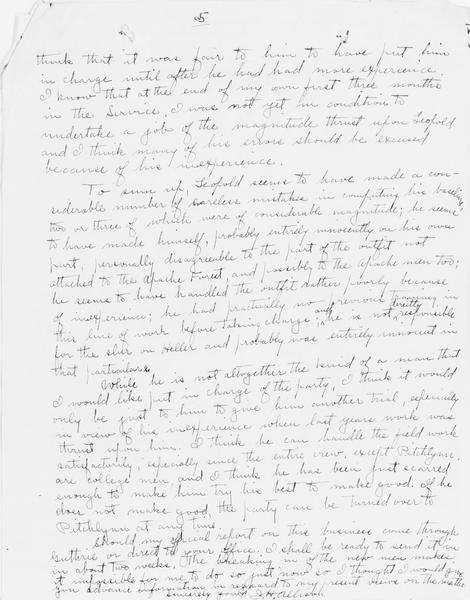 5
think that it was fair to him to have put him
in charge until after he had had more experience.
I know that at the end of my own first three months
in the Service, I was not yet in condition to
undertake a job of the magnitude thrust upon Leopold
and I think many of his errors should be excused
because of his inexperience.
To sum up, Leopold seems to have made a con-
siderable number of careless mistakes in computing his baseline,
two or three of which were of considerable magnitude; he seems
to have made himself, probably entirely innocently on his own
part, personally disagreeable to the part of the outfit not
attached to the Apache Forest, and possibly to the Apache men too;
he seems to have handled the outfit rather poorly because
of inexperience; he had practically no previous training in
this line of work before taking charge; and he is not directly responsible
for the slur on Heller and probably was entirely innocent in
that particular.
While he is not altogether the kind of a man that
I would like put in charge of the party, I think it would
only be just to him to give him another trial, especially
in view of his inexperience when last years work was
thrust upon him. I think he can handle the field work
satisfactorily, especially since the entire crew, except Pitchlynn,
are college men, and I think he has been just scarred
enough to make him try his best to make good. If he
does not make good, the party can be turned over to
Pitchlynn at any time.
Should my official report on this business come through
Guthrie or direct to your office. I shall be ready to send it in
in about two weeks. The breaking in of the new men makes
it impossible for me to do so just now so I thought I would give
you advance information in regard to my present views on the matter.
Sincerely yours J.H. Allison